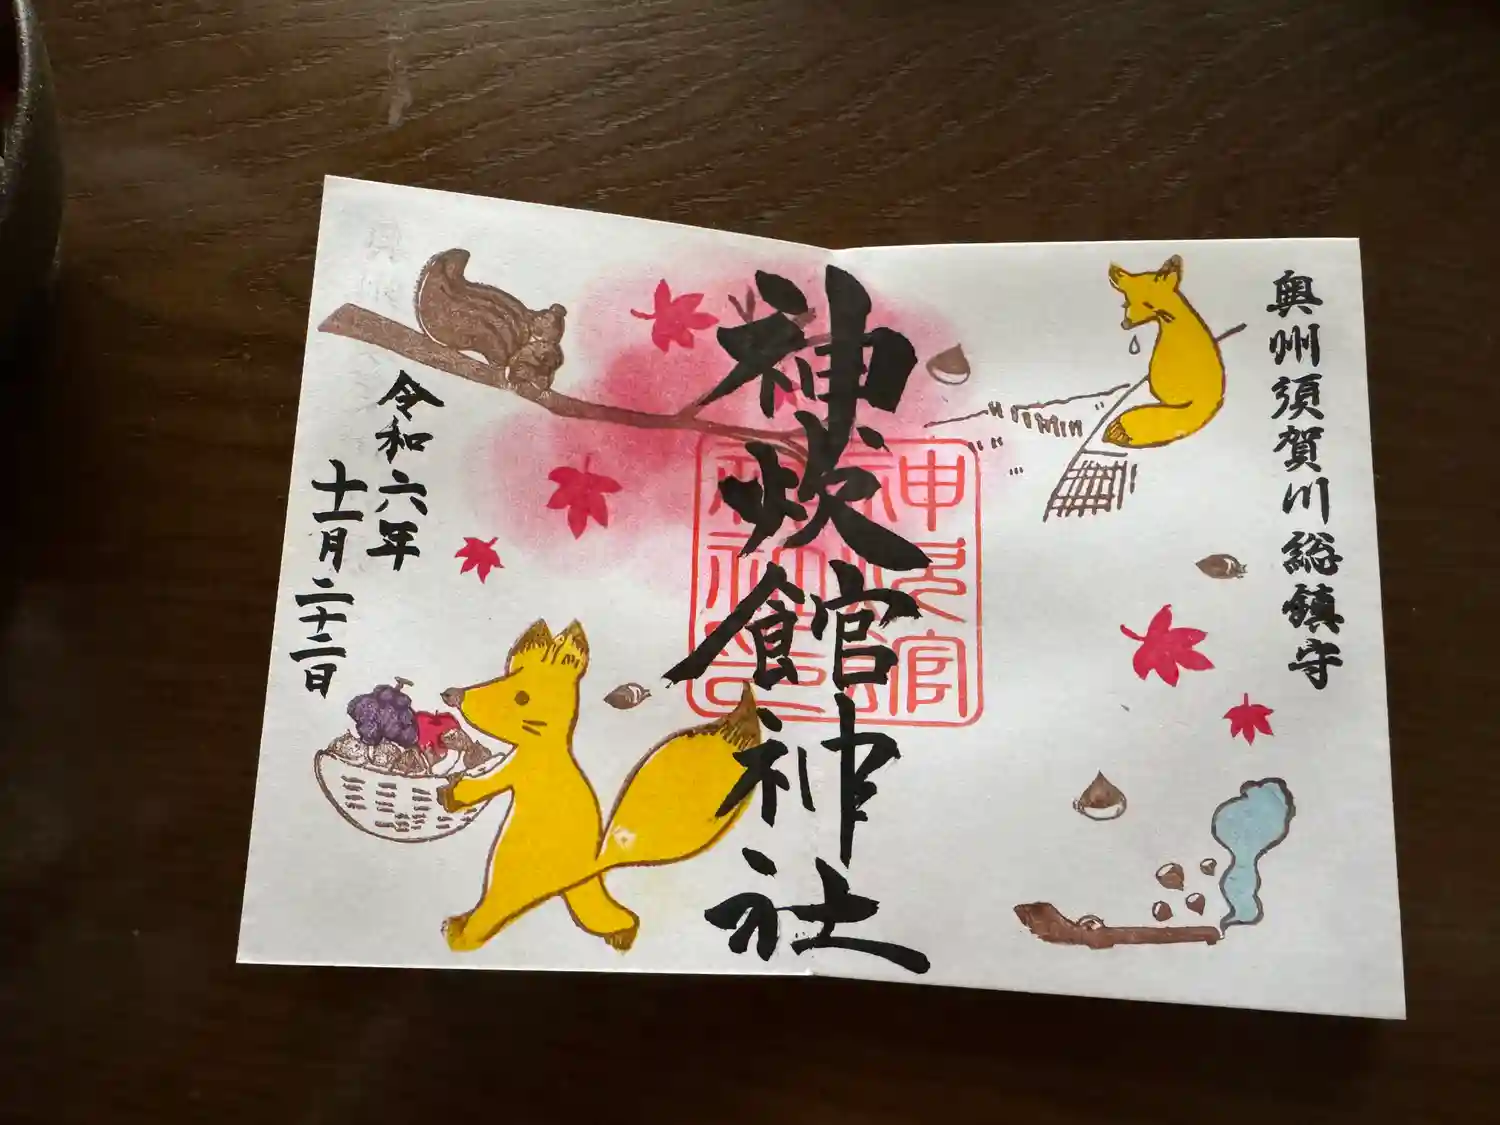 奥州須賀川総鎮守
神炊館神社
令和六年
十一月二十二日